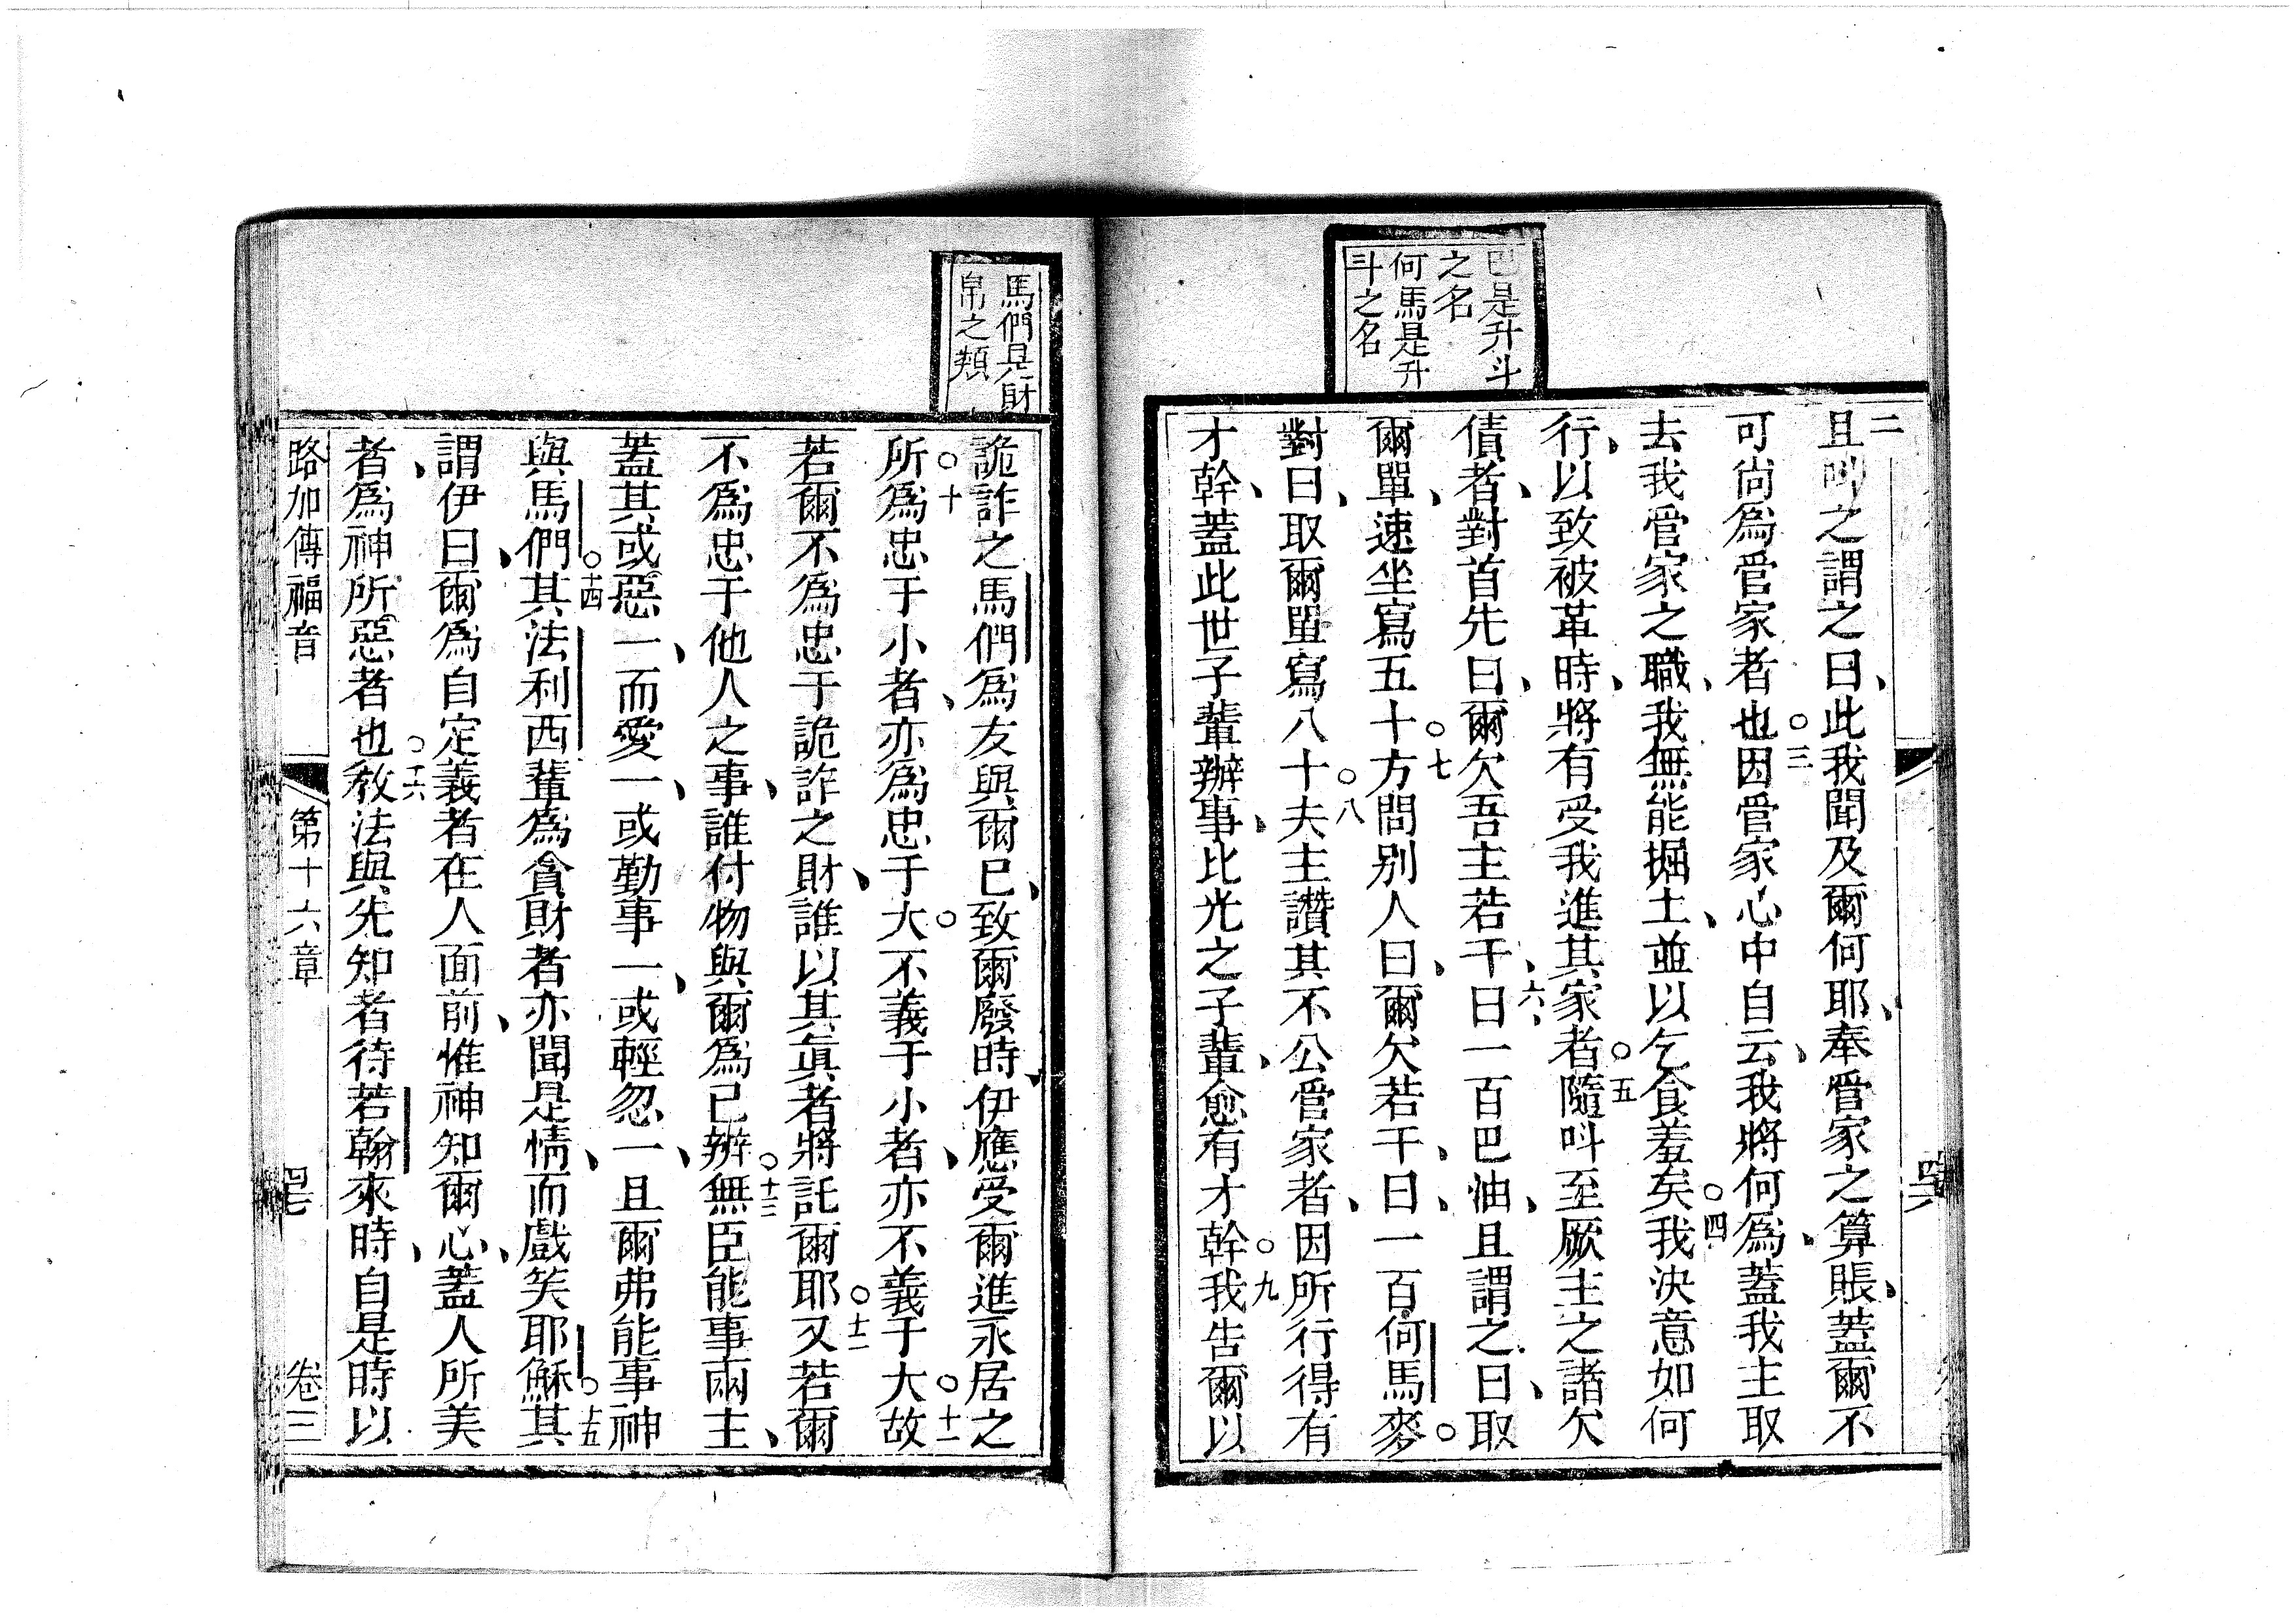 巴是升斗
之名
何馬是升
斗之名
二
且叫之謂之曰、此我聞及爾何耶、奉管家之算賬、蓋爾不
可尚爲管家者也○三因管家心中自云、我將何爲、蓋我主取
去我管家之職、我無能掘土、並以乞食羞矣○四我決意如何
行、以致被革時、將有受我進其家者○五隨呌至厥主之諸欠
債者、對首先曰、爾欠吾主若干、六、曰一百巴油、且謂之曰、取
爾單、速坐寫五十○七方問别人曰、爾欠若干、曰、一百何馬麥○
對曰、取爾單寫八十○八夫主讚其不公管家者、因所行得有
才幹、蓋此世子輩辦事、比光之子輩、愈有才幹○九我告爾以
四六
馬們是財
帛之類
詭詐之馬們爲友與爾已、致爾廢時、伊應受爾進永居之
○十所爲忠于小者、亦爲忠于大○不義于小者、亦不義于大○十一故
若爾不爲忠于詭詐之財、誰以其眞者將託爾耶○十二又若爾
不爲忠于他人之事、誰付物與爾爲己辦○十三無臣能事兩主、
蓋其或惡一、而愛一、或勤事一、或輕忽一、且爾弗能事神
與馬們○十四其法利西輩爲貪財者亦聞是情、而戲笑耶穌○十五其
謂伊曰、爾爲自定義者在人面前、惟神知爾心、蓋人所美
者、爲神所惡者也○十六教法與先知者待若翰來時、自是時以
路加傳福音
第十六章
四七
卷三